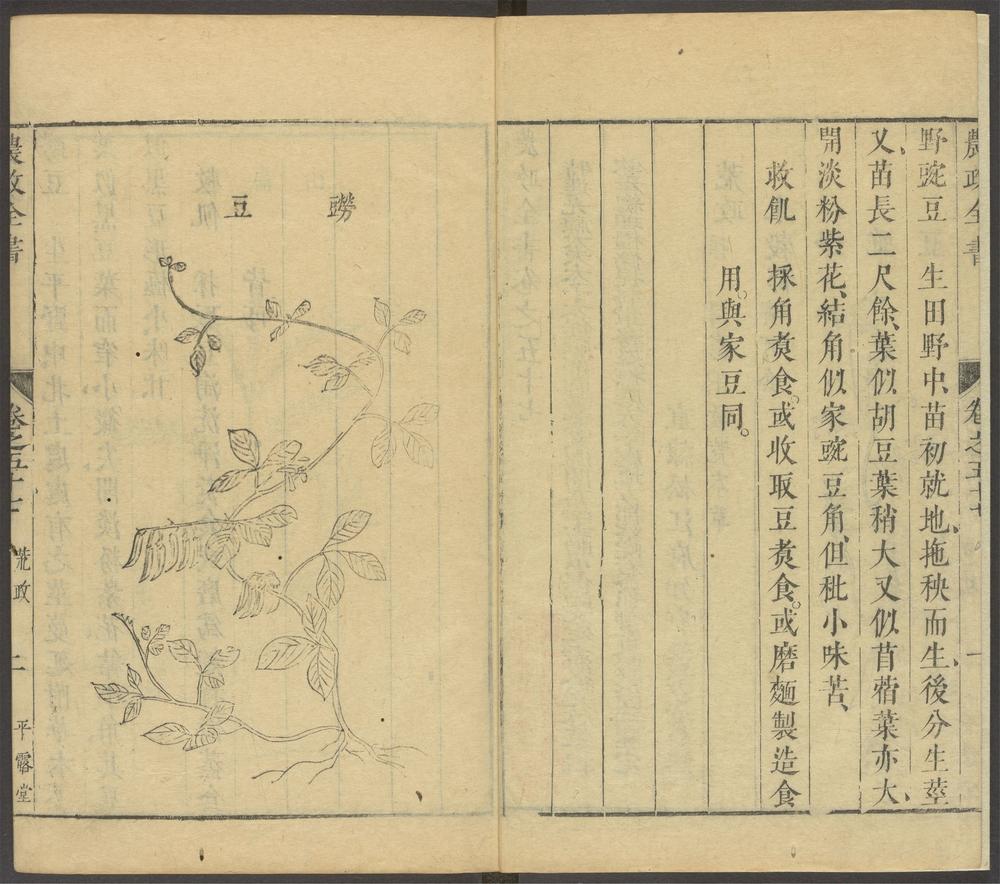 農政全書 卷之五十七 一
野豌豆 生田野中、苗初就地、拖秧而生、後分生莖
又、苗長二尺餘、葉似胡豆葉稍大又似苜蓿葉亦大、
開淡粉紫花、結角似家豌豆角、但秕小味苦、
救飢 採角煑食。或收取豆煑食。或磨麵製造食
用。與家豆同。
䝁豆
農政全書 卷之五十七 荒政 二 平露堂